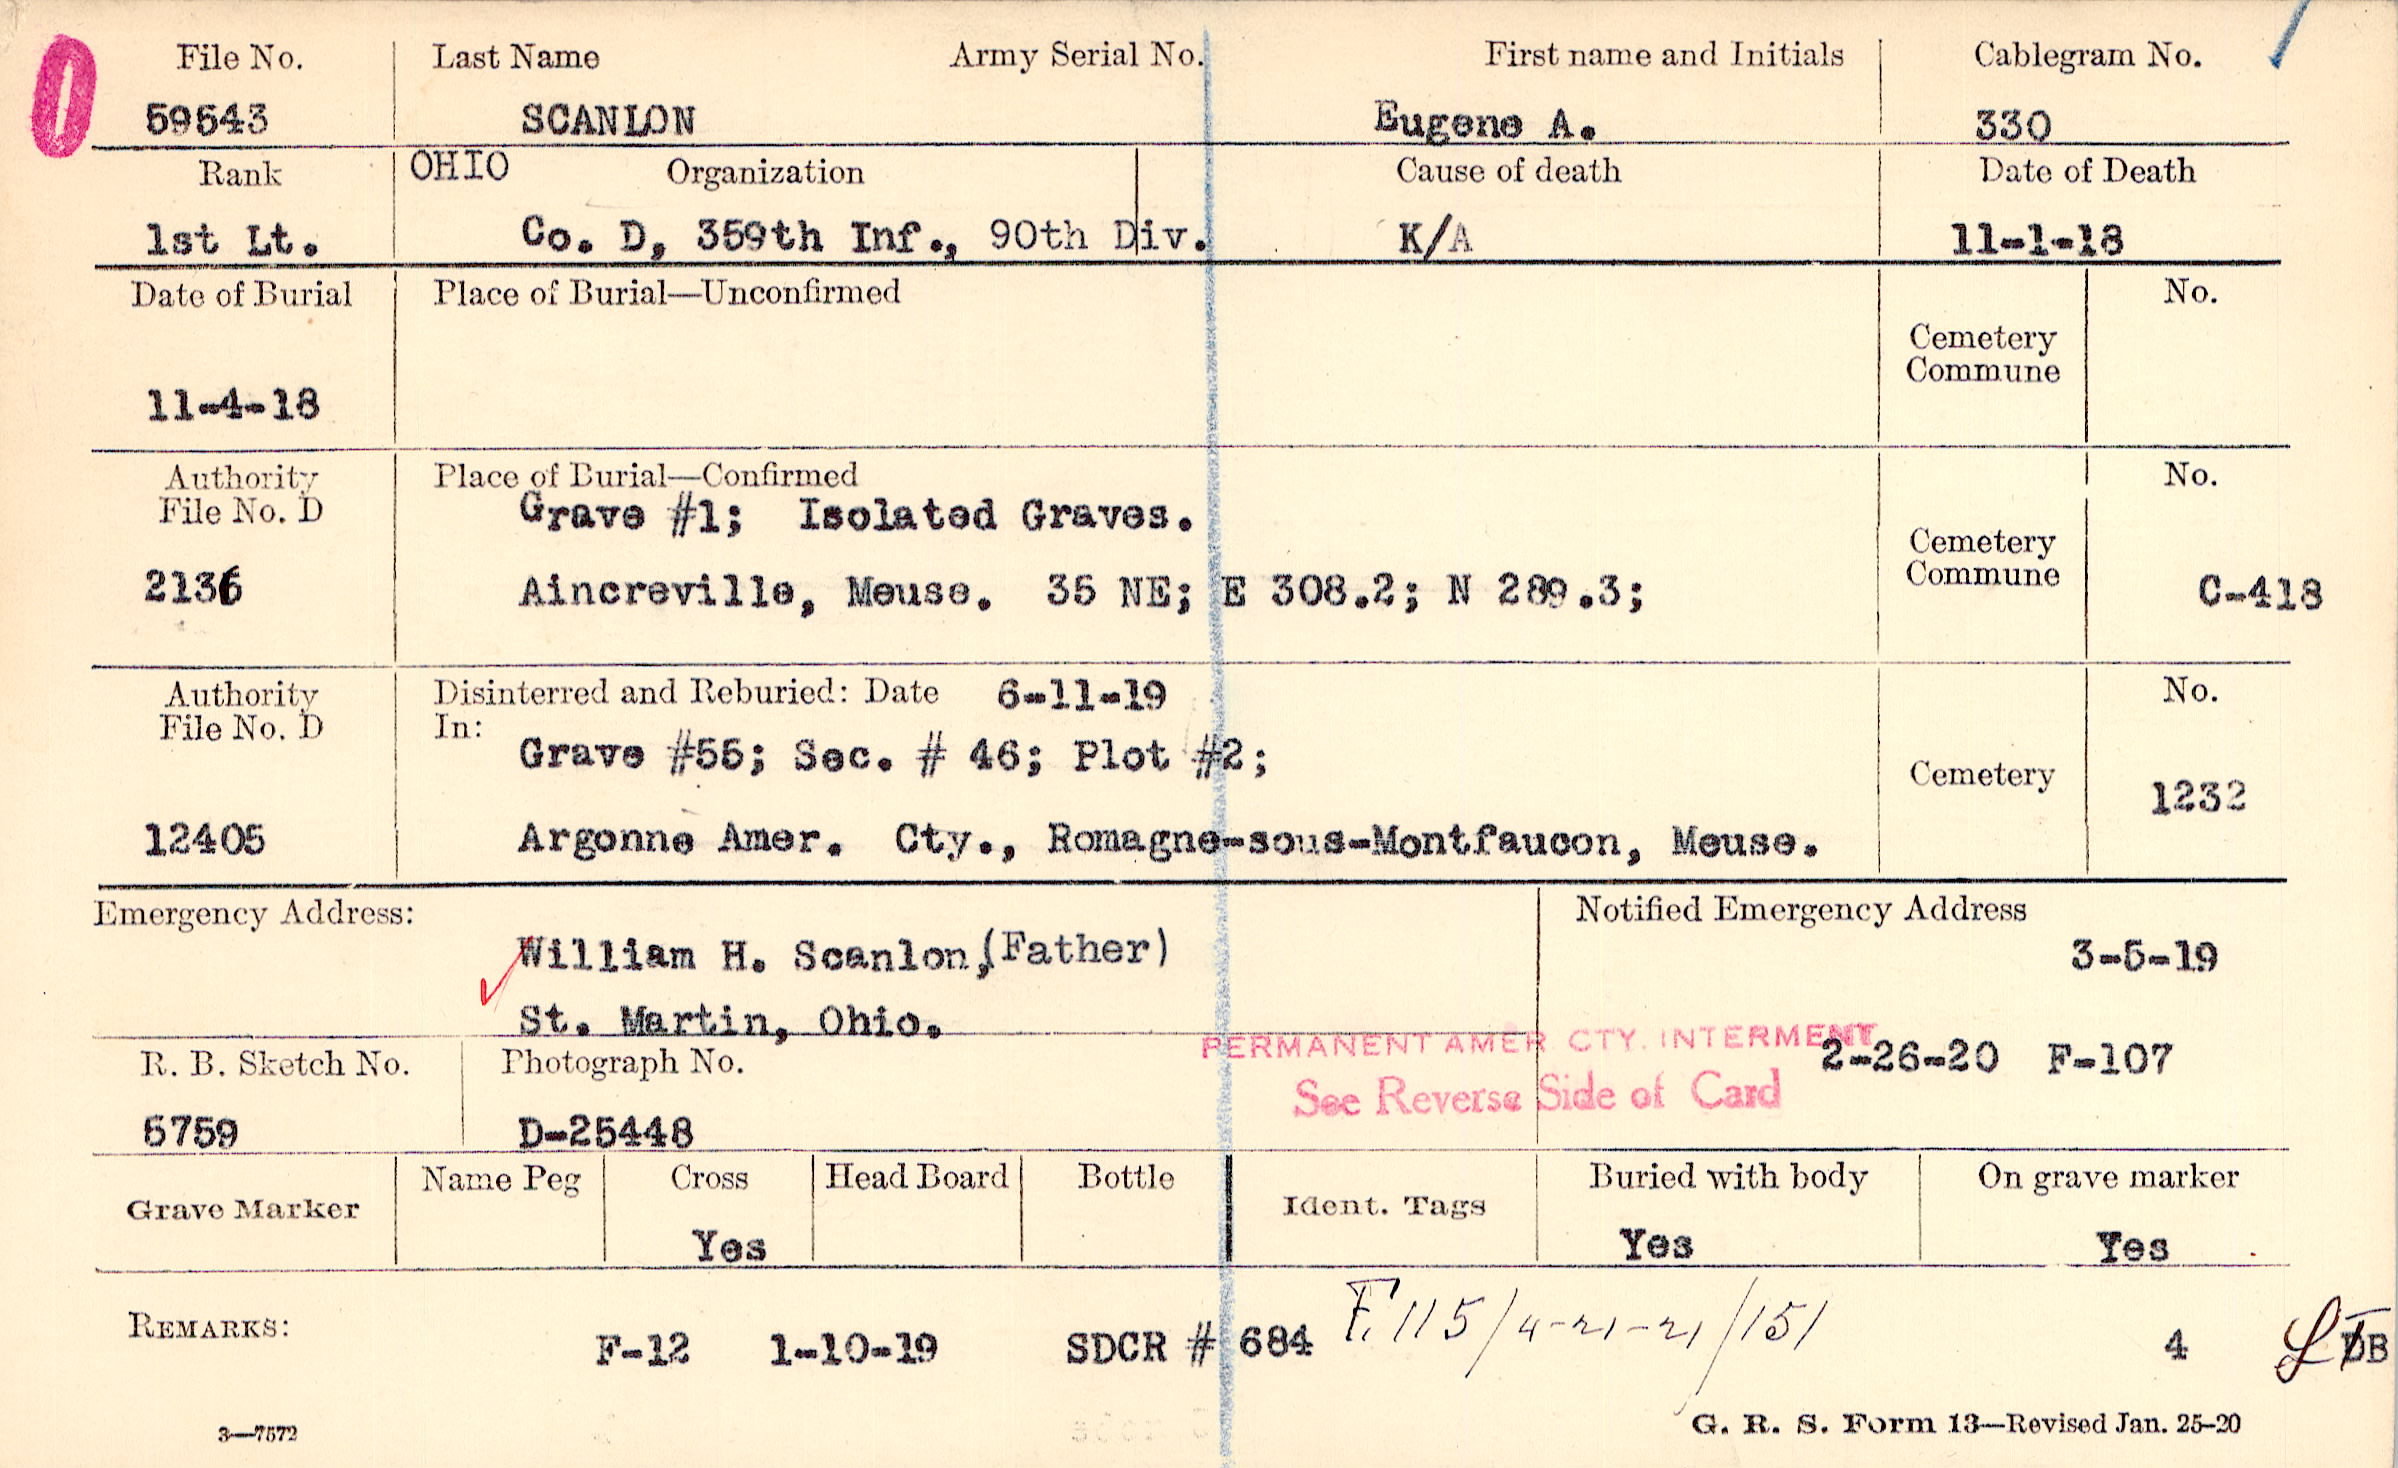 File No. Last Name Army Serial No. First name and Initials Cablegram No.
59543 SCANLON Eugene A. 330
Rank OHIO Organization Cause of death Date of Death
1st Lt. Co. D, 359th Inf., 90th Div. K/A 11-1-18
Date of Burial Place of Burial—Unconfirmed No.
Cemetery
Commune
11-4-18
Authority Place of Burial—Confirmed No.
File No. D Grave #1; Isolated Graves.
Cemetery
Commune
2136 Aincreville, Meuse. 35 NE; E 308.2; N 289.3; C-418
Authority Disinterred and Reburied: Date 6-11-19 No.
File No. D In:
Grave #55; Sec. # 46; Plot #2;
Cemetery 1232
12405 Argonne Amer. Cty., Romagne-sous-Montfaucon, Meuse.
Emergency Address: Notified Emergency Address
William H. Scanlon, (Father) 3-5-19
St. Martin, Ohio.
PERMANENT AMER CTY. INTERMENT
2-26-20 F-107
R. B. Sketch No. Photograph No.
See Reverse Side of Card
5759 D-25448
Grave Marker Name Peg Cross Head Board Bottle Ident. Tags Buried with body On grave marker
Yes Yes Yes
REMARKS: F-12 1-10-19 SDCR # 684 F.115/4-21-21/151 4
3—7572 G. R. S. Form 13—Revised Jan. 25-20